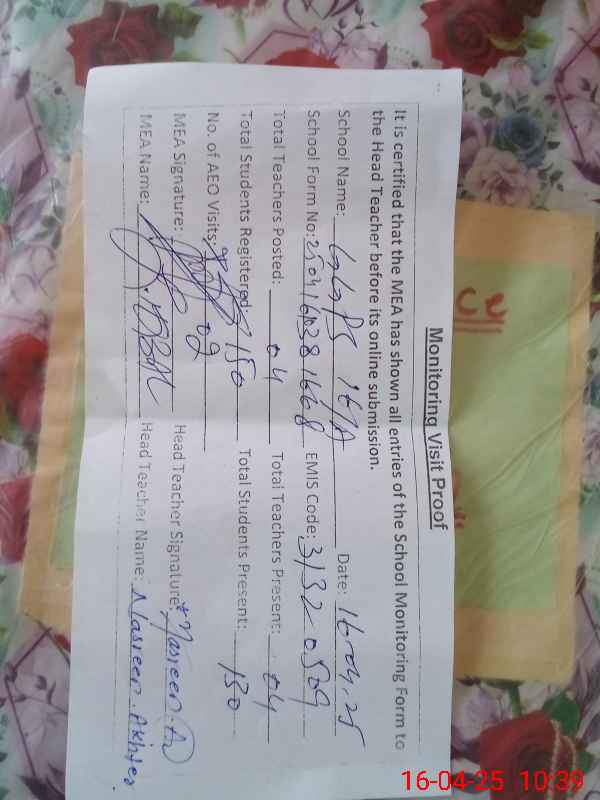 Monitoring Visit Proof
It is certified that the MEA has shown all entries of the School Monitoring Form to
the Head Teacher before its online submission.
School Name: GGPS 167/A Date: 16-04-25
School Form No: 250416038 1668 EMIS Code: 31320509
Total Teachers Posted: 04 Total Teachers Present: 04
Total Students Registered: 150 Total Students Present: 130
No. of AEO Visits: 02
MEA Signature: Head Teacher Signature: Nasreen.A
MEA Name: Head Teacher Name: Nasreen.Akhter.
CE
16-04-25 10:39